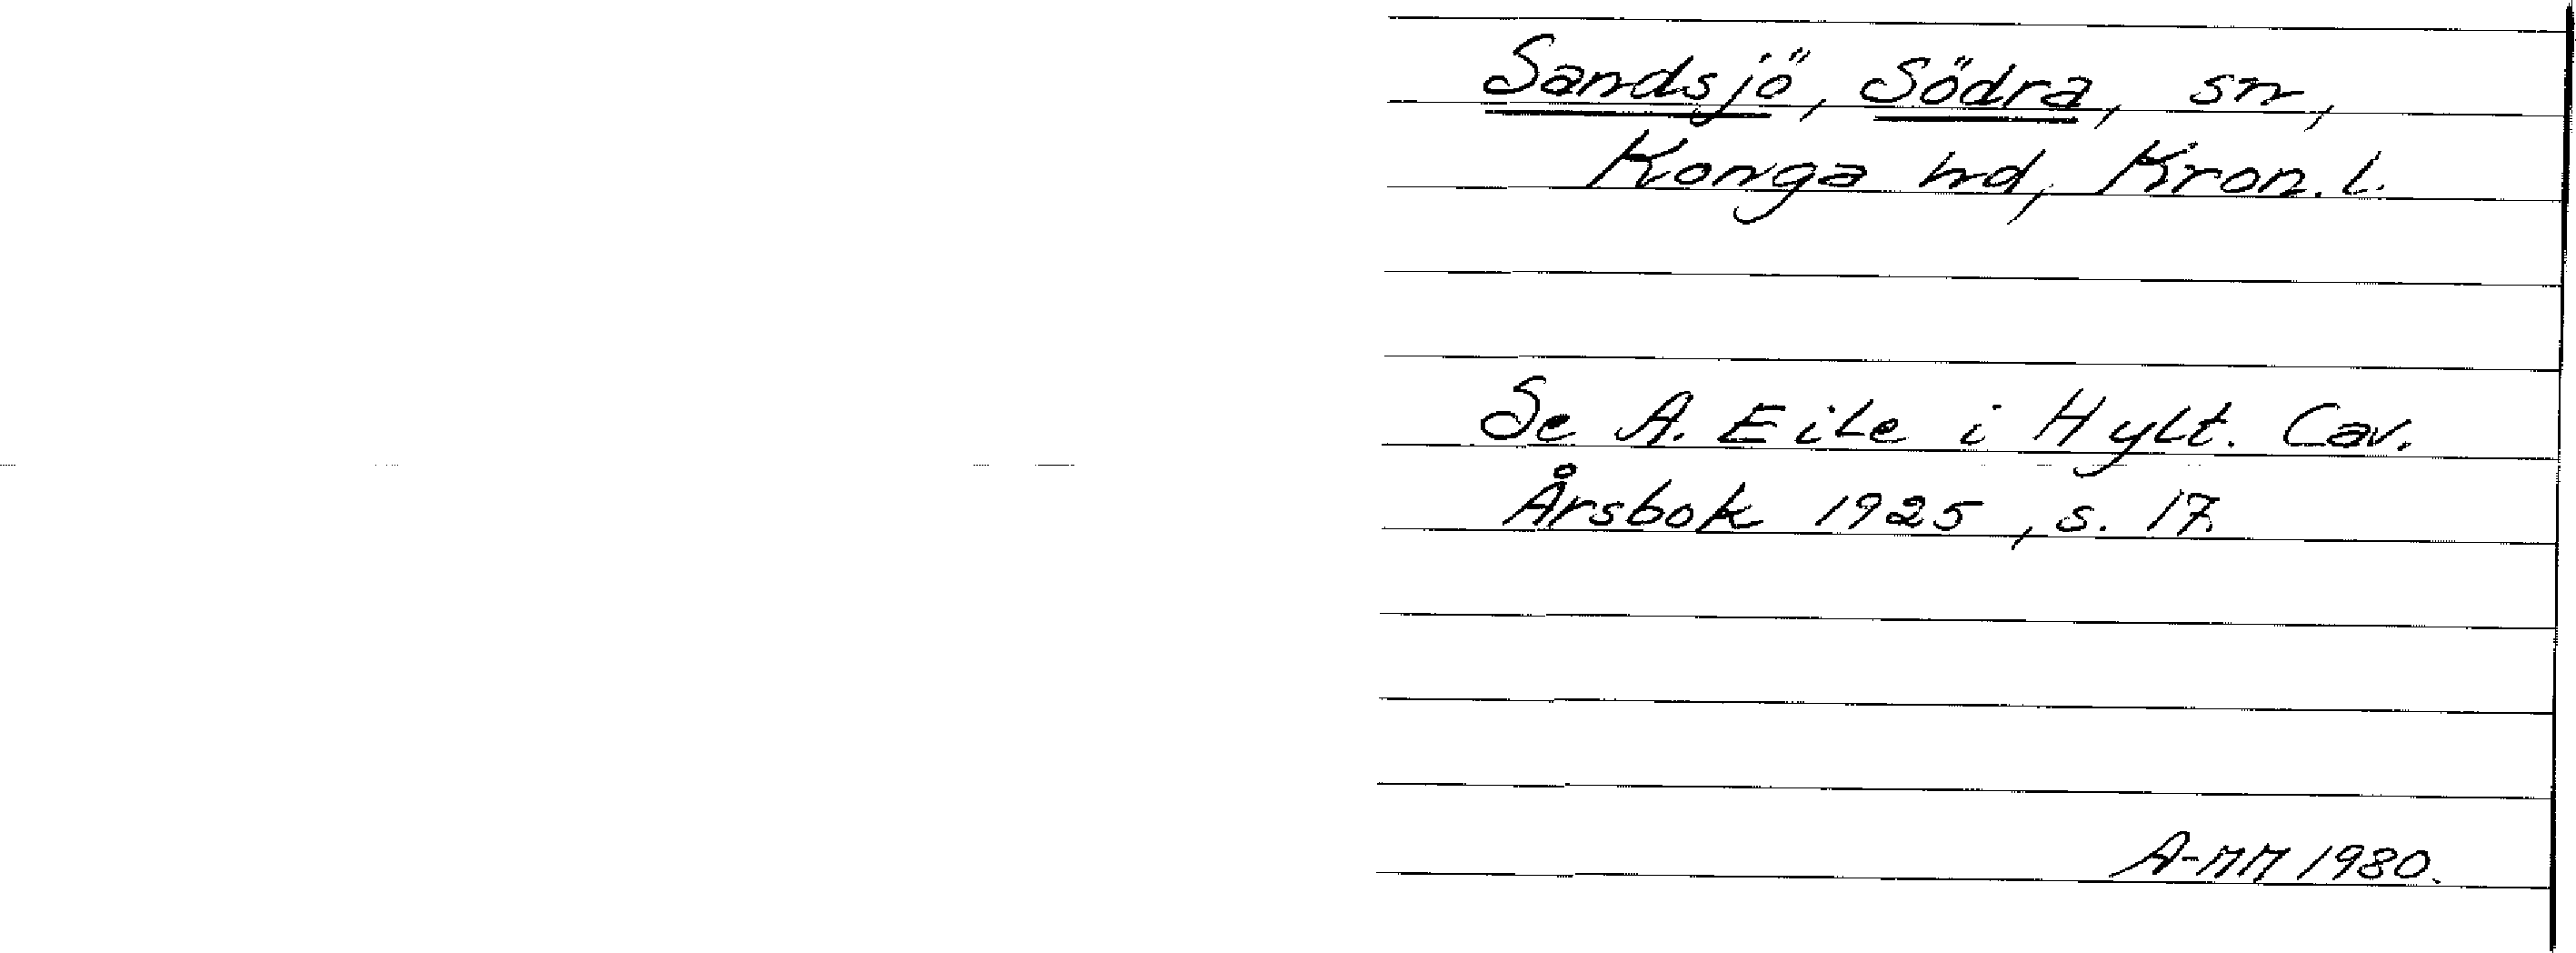 Sandsjö, Södra, sn,
Konga hd, Kron. l.
Se A. Eile i Hylt. Cav.
Årsbok 1925, s. 17
A-MM 1980.